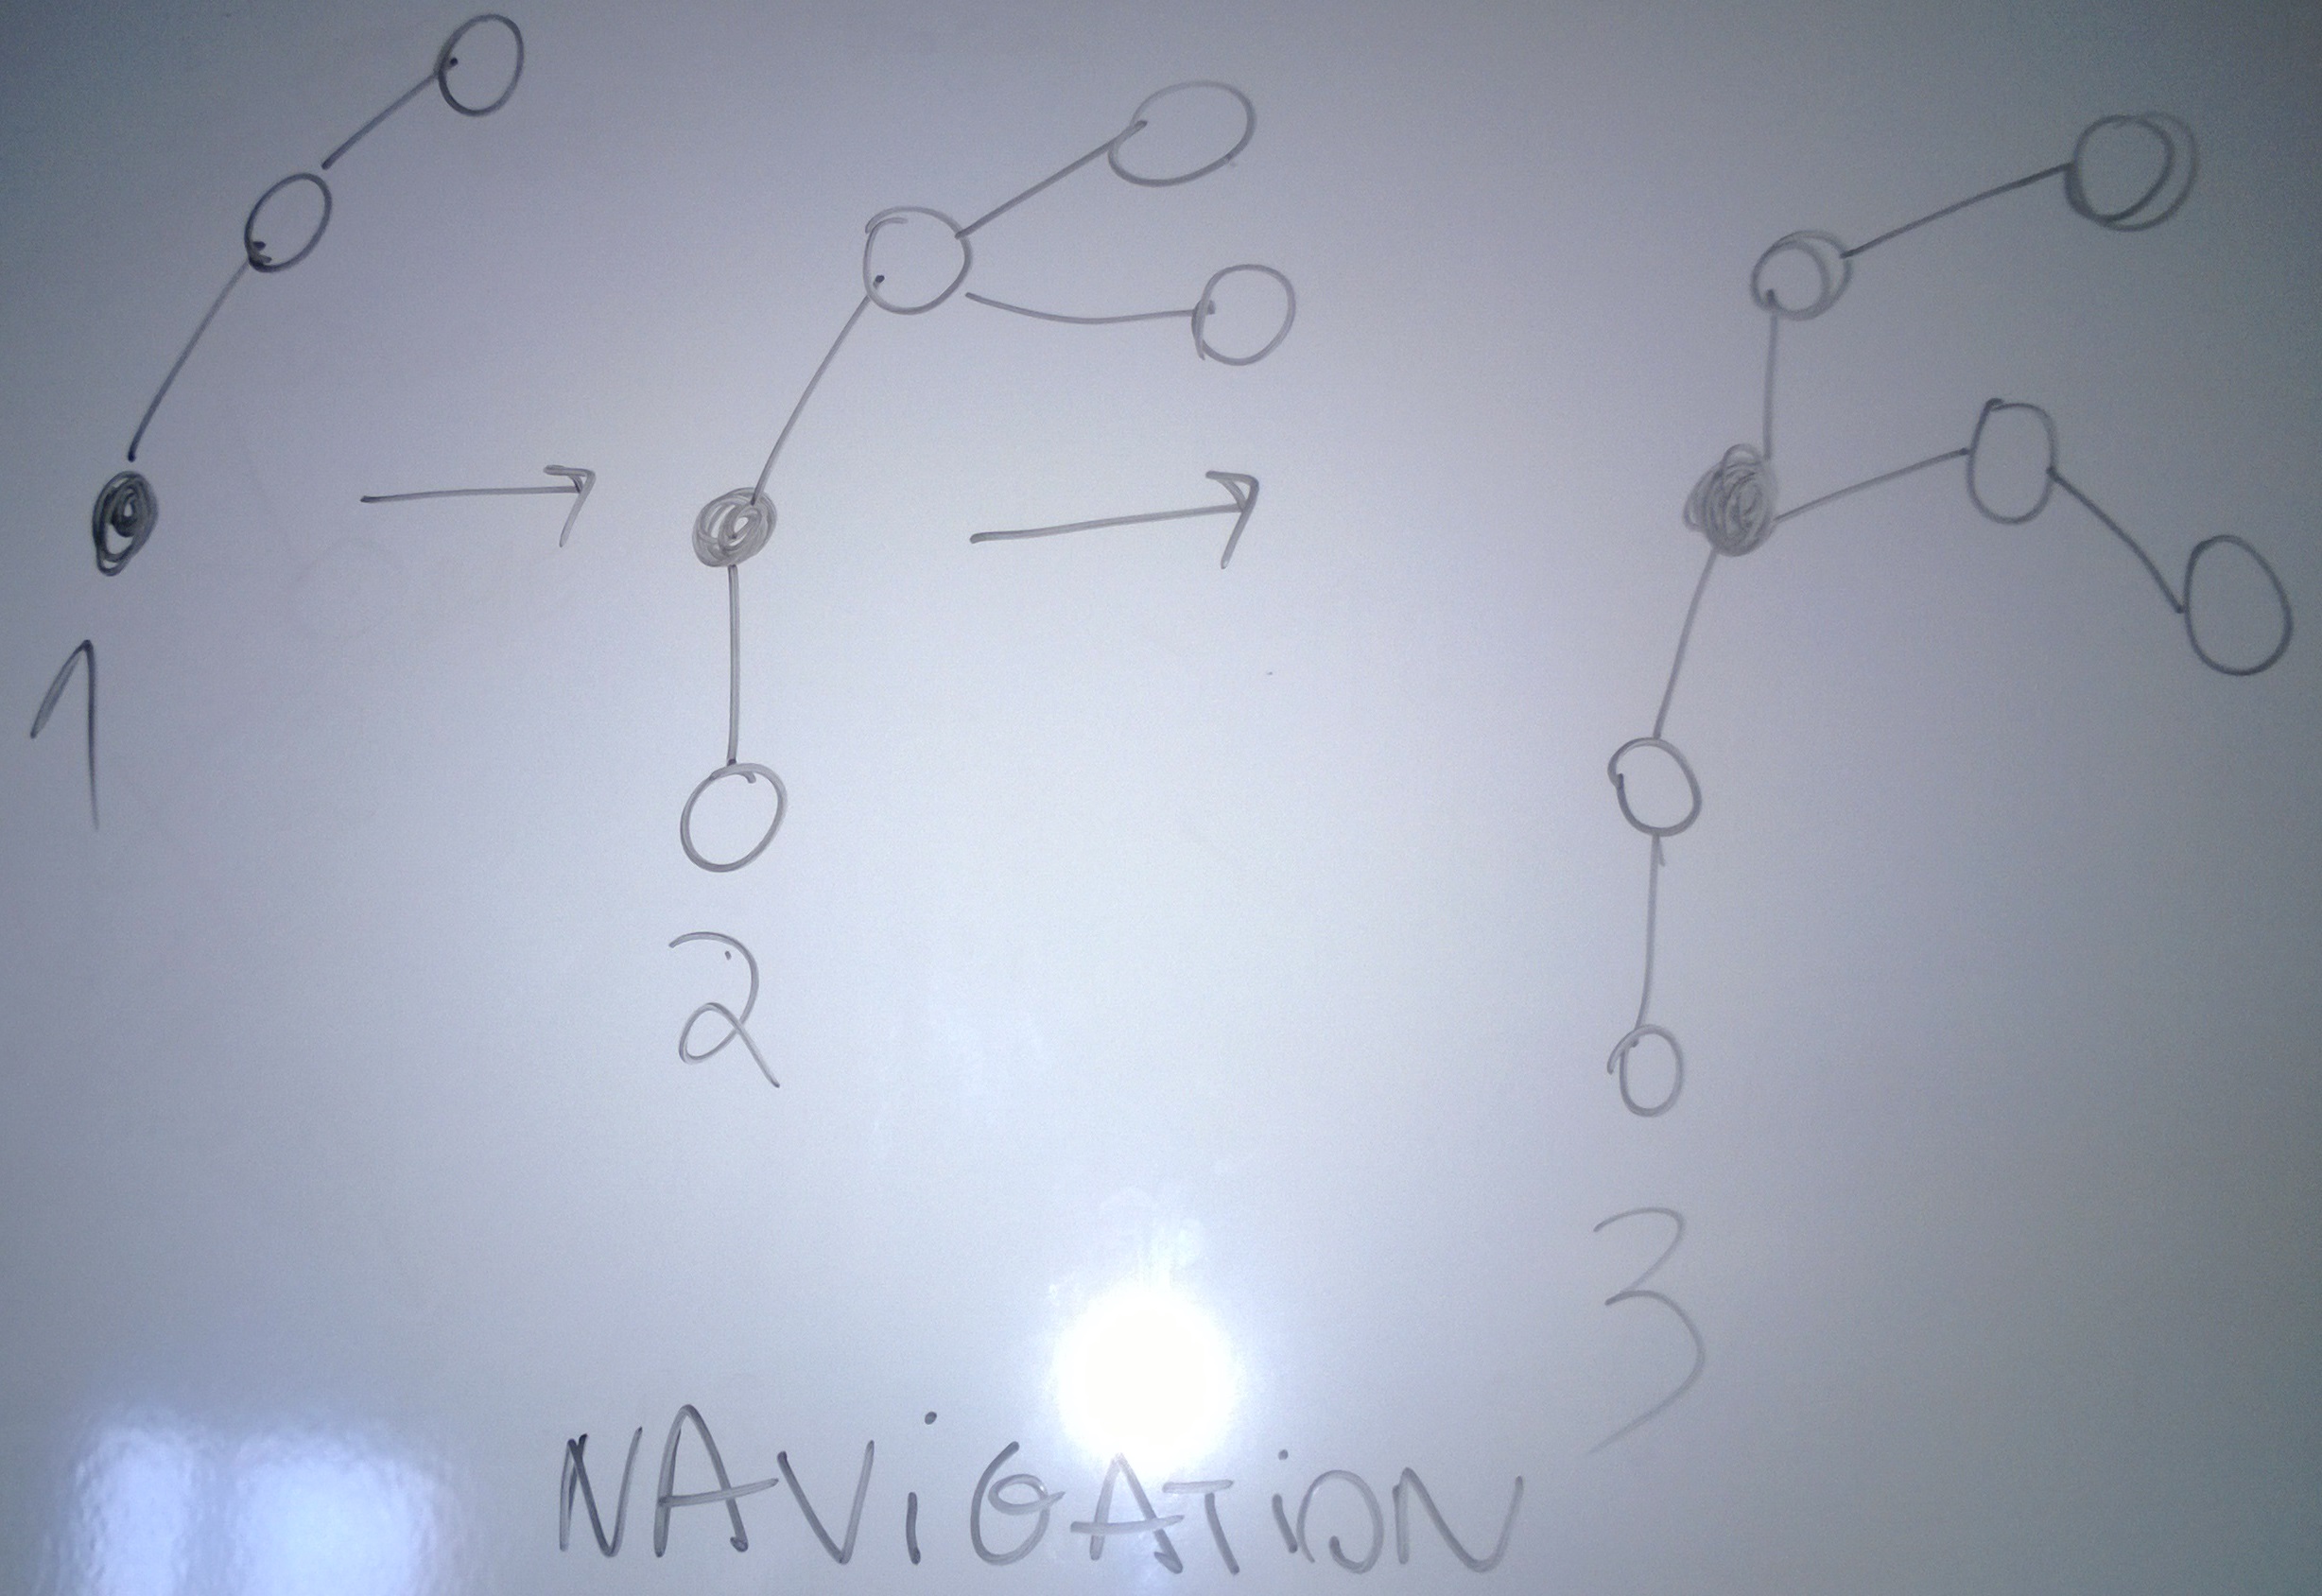 1
2
3
NAViGATiON